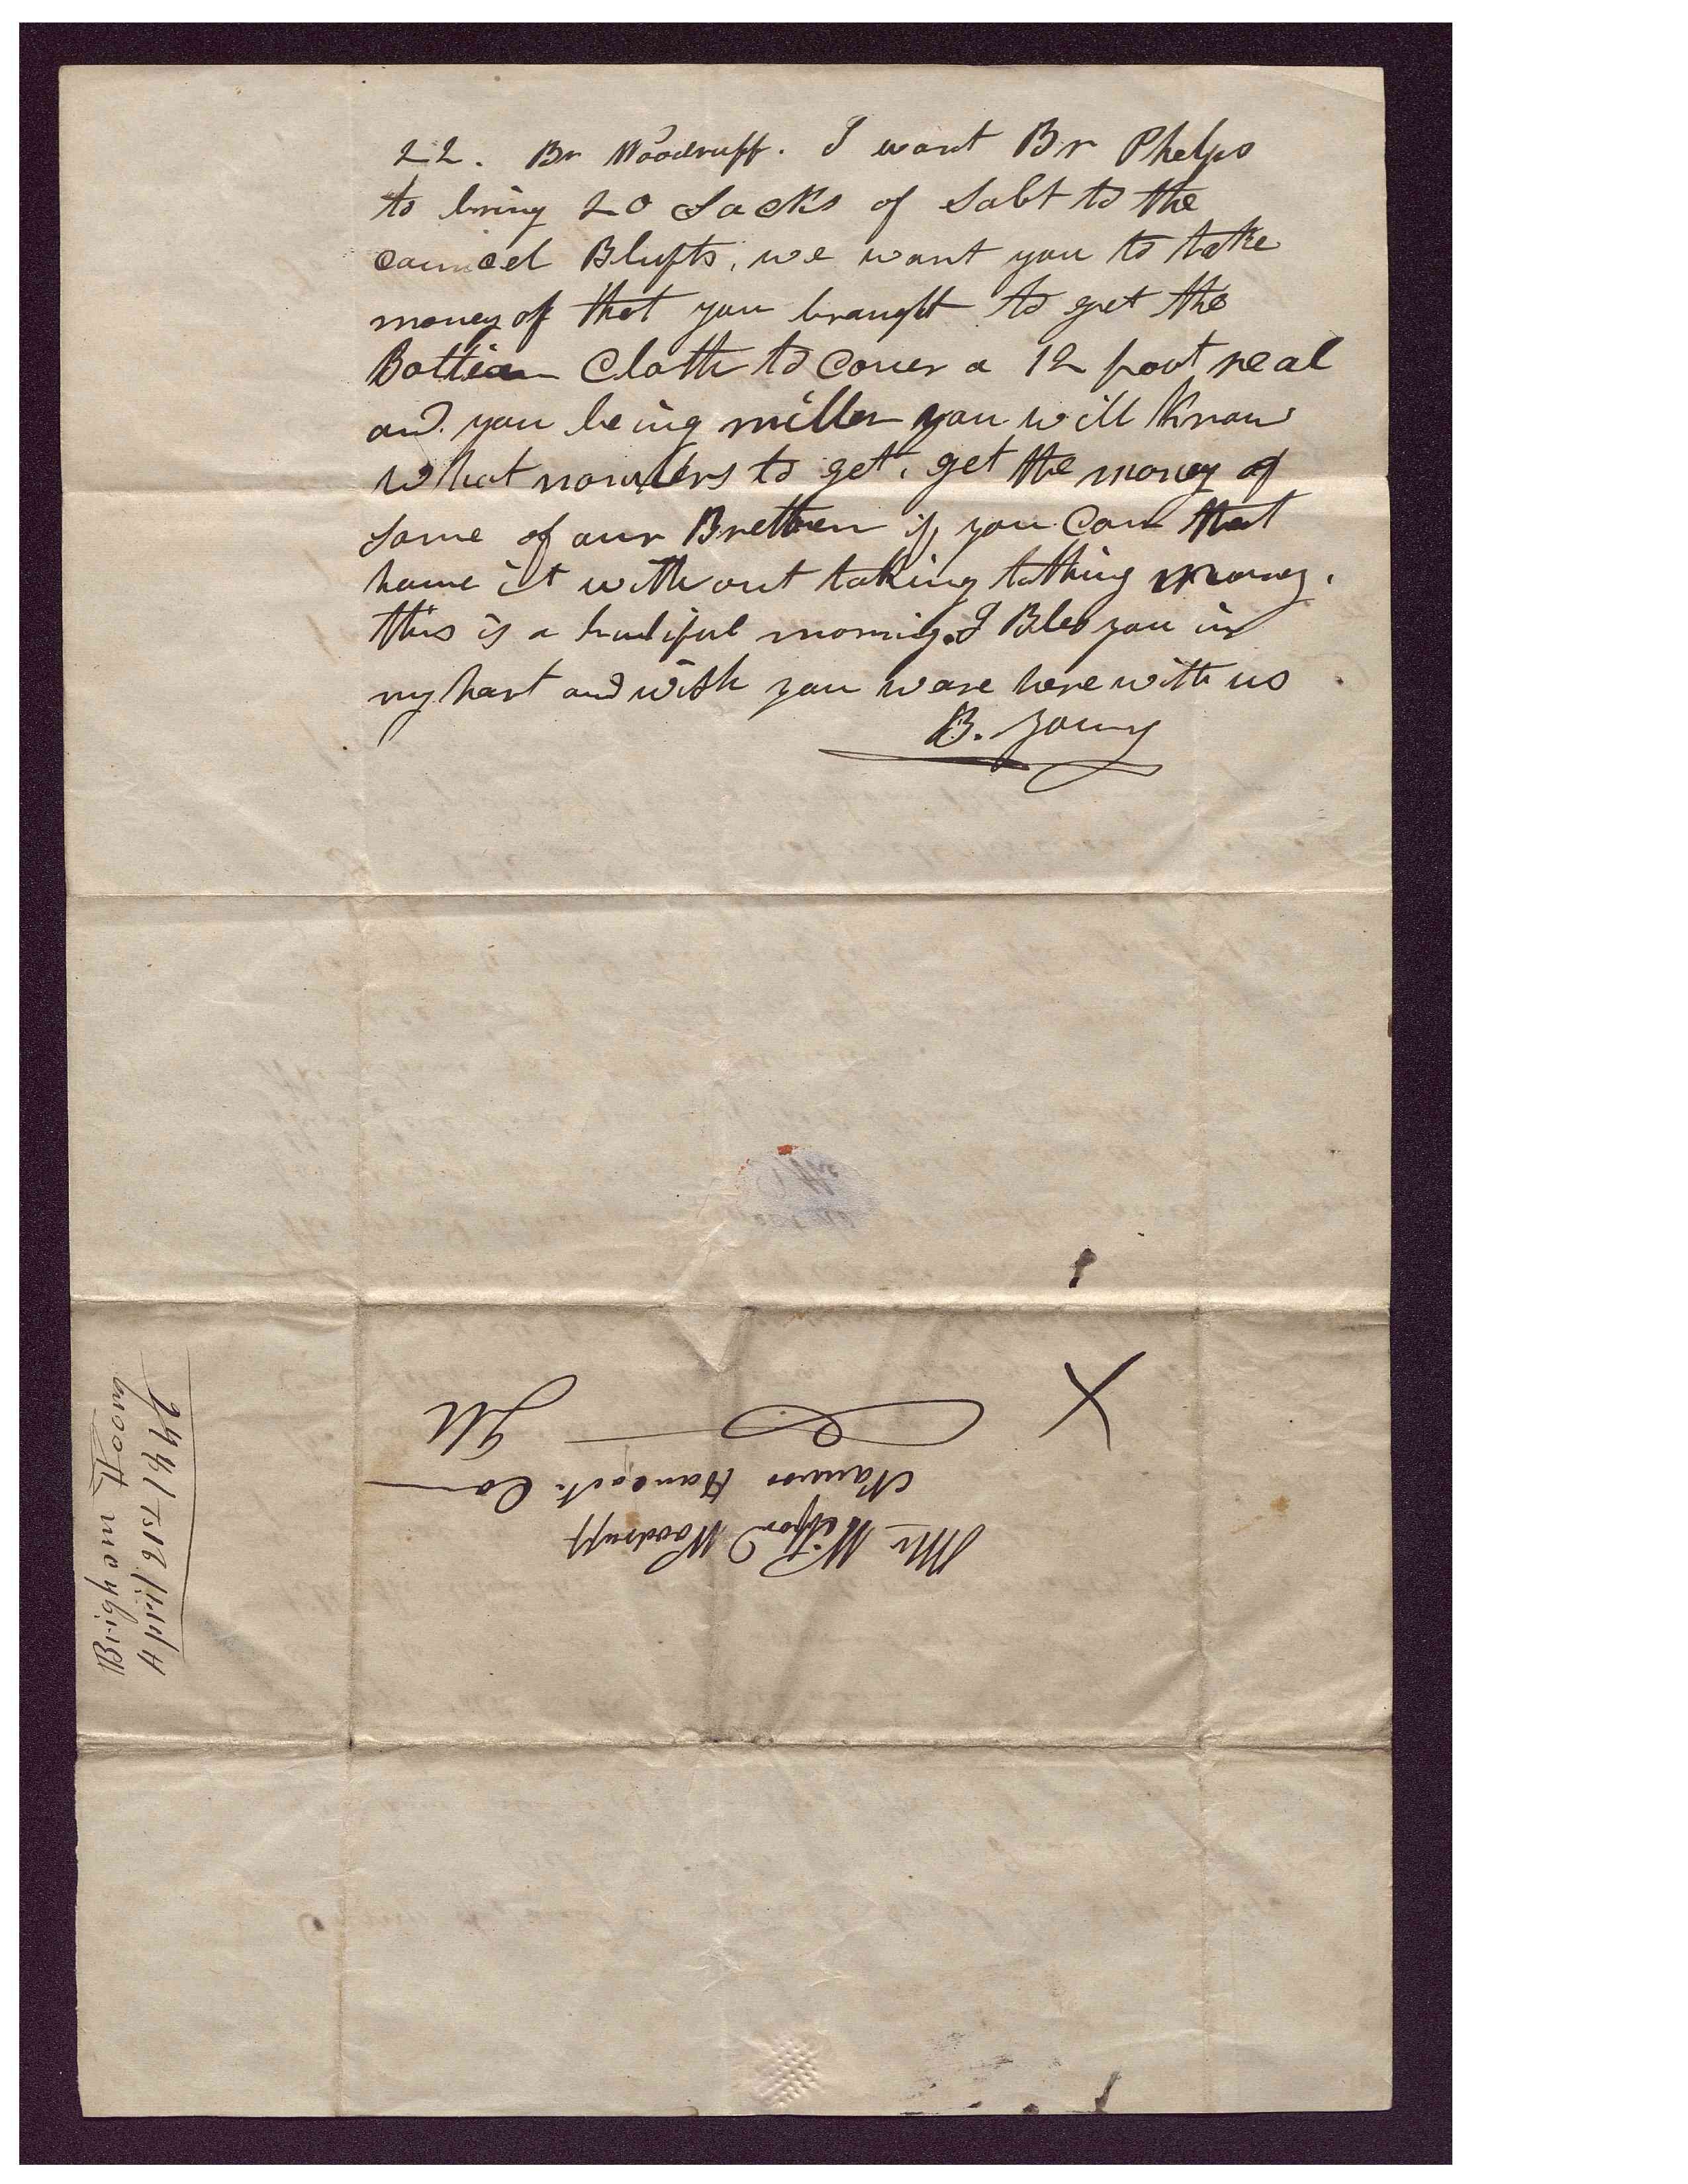 22. Br Woodruff. I want Br Phelps
to bring 20 Sacks of Salt to the
councel Blufts, we want you to take
money of that you braught to get the
Boltian Cloth to Cover a 12 foot real
and you being miller you will know
what nombers to get. get the money of
some of our Brethren if you Can that
have it without taking tithing money.
this is a butiful morning. I Bles you in
my hart and wish you ware here with us
B. Young
Mr Wilford Woodruff
Nauvoo Hancock Co
Ill
Brigham Young
April 21st 1846